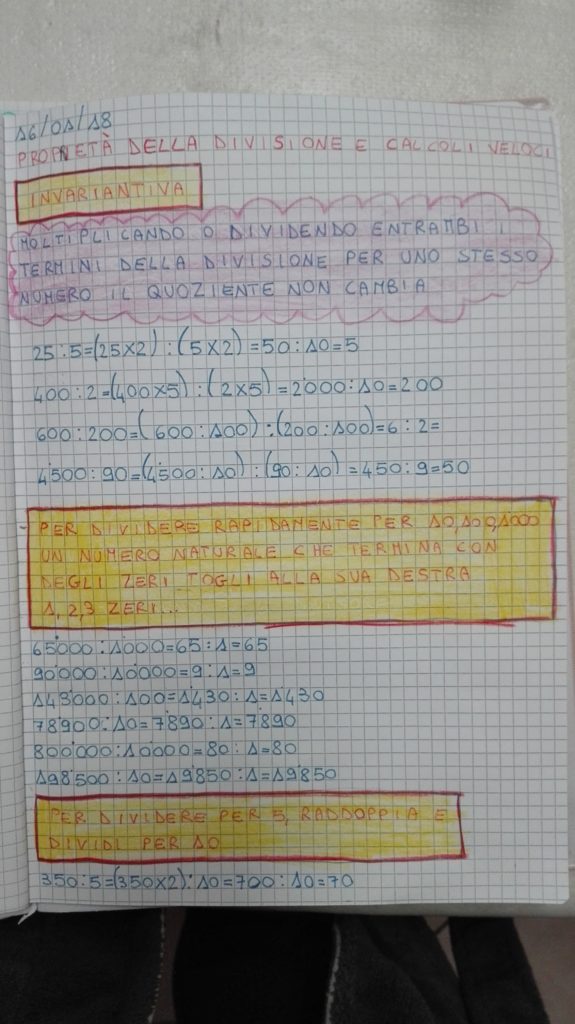 16/01/18
PROPRIETÀ DELLA DIVISIONE E CALCOLI VELOCI
INVARIANTIVA
MOLTIPLICANDO O DIVIDENDO ENTRAMBI I
TERMINI DELLA DIVISIONE PER UNO STESSO
NUMERO IL QUOZIENTE NON CAMBIA
25:5=(25X2):(5X2)=50:10=5
400:2=(400X5):(2X5)=2'000:10=200
600:200=(600:100):(200:100)=6:2=
4'500:90=(4'500:10):(90:10)=450:9=50
PER DIVIDERE RAPIDAMENTE PER 10,100,1000
UN NUMERO NATURALE CHE TERMINA CON
DEGLI ZERI TOGLI ALLA SUA DESTRA
1,2,3 ZERI...
65'000:1'000=65:1=65
90'000:10'000=9:1=9
143'000:100=1'430:1=1'430
78'900:10=7'890:1=7'890
800'000:10'000=80:1=80
198'500:10=19'850:1=19'850
PER DIVIDERE PER 5, RADDOPPIA E
DIVIDI PER 10
350:5=(350X2):10=700:10=70